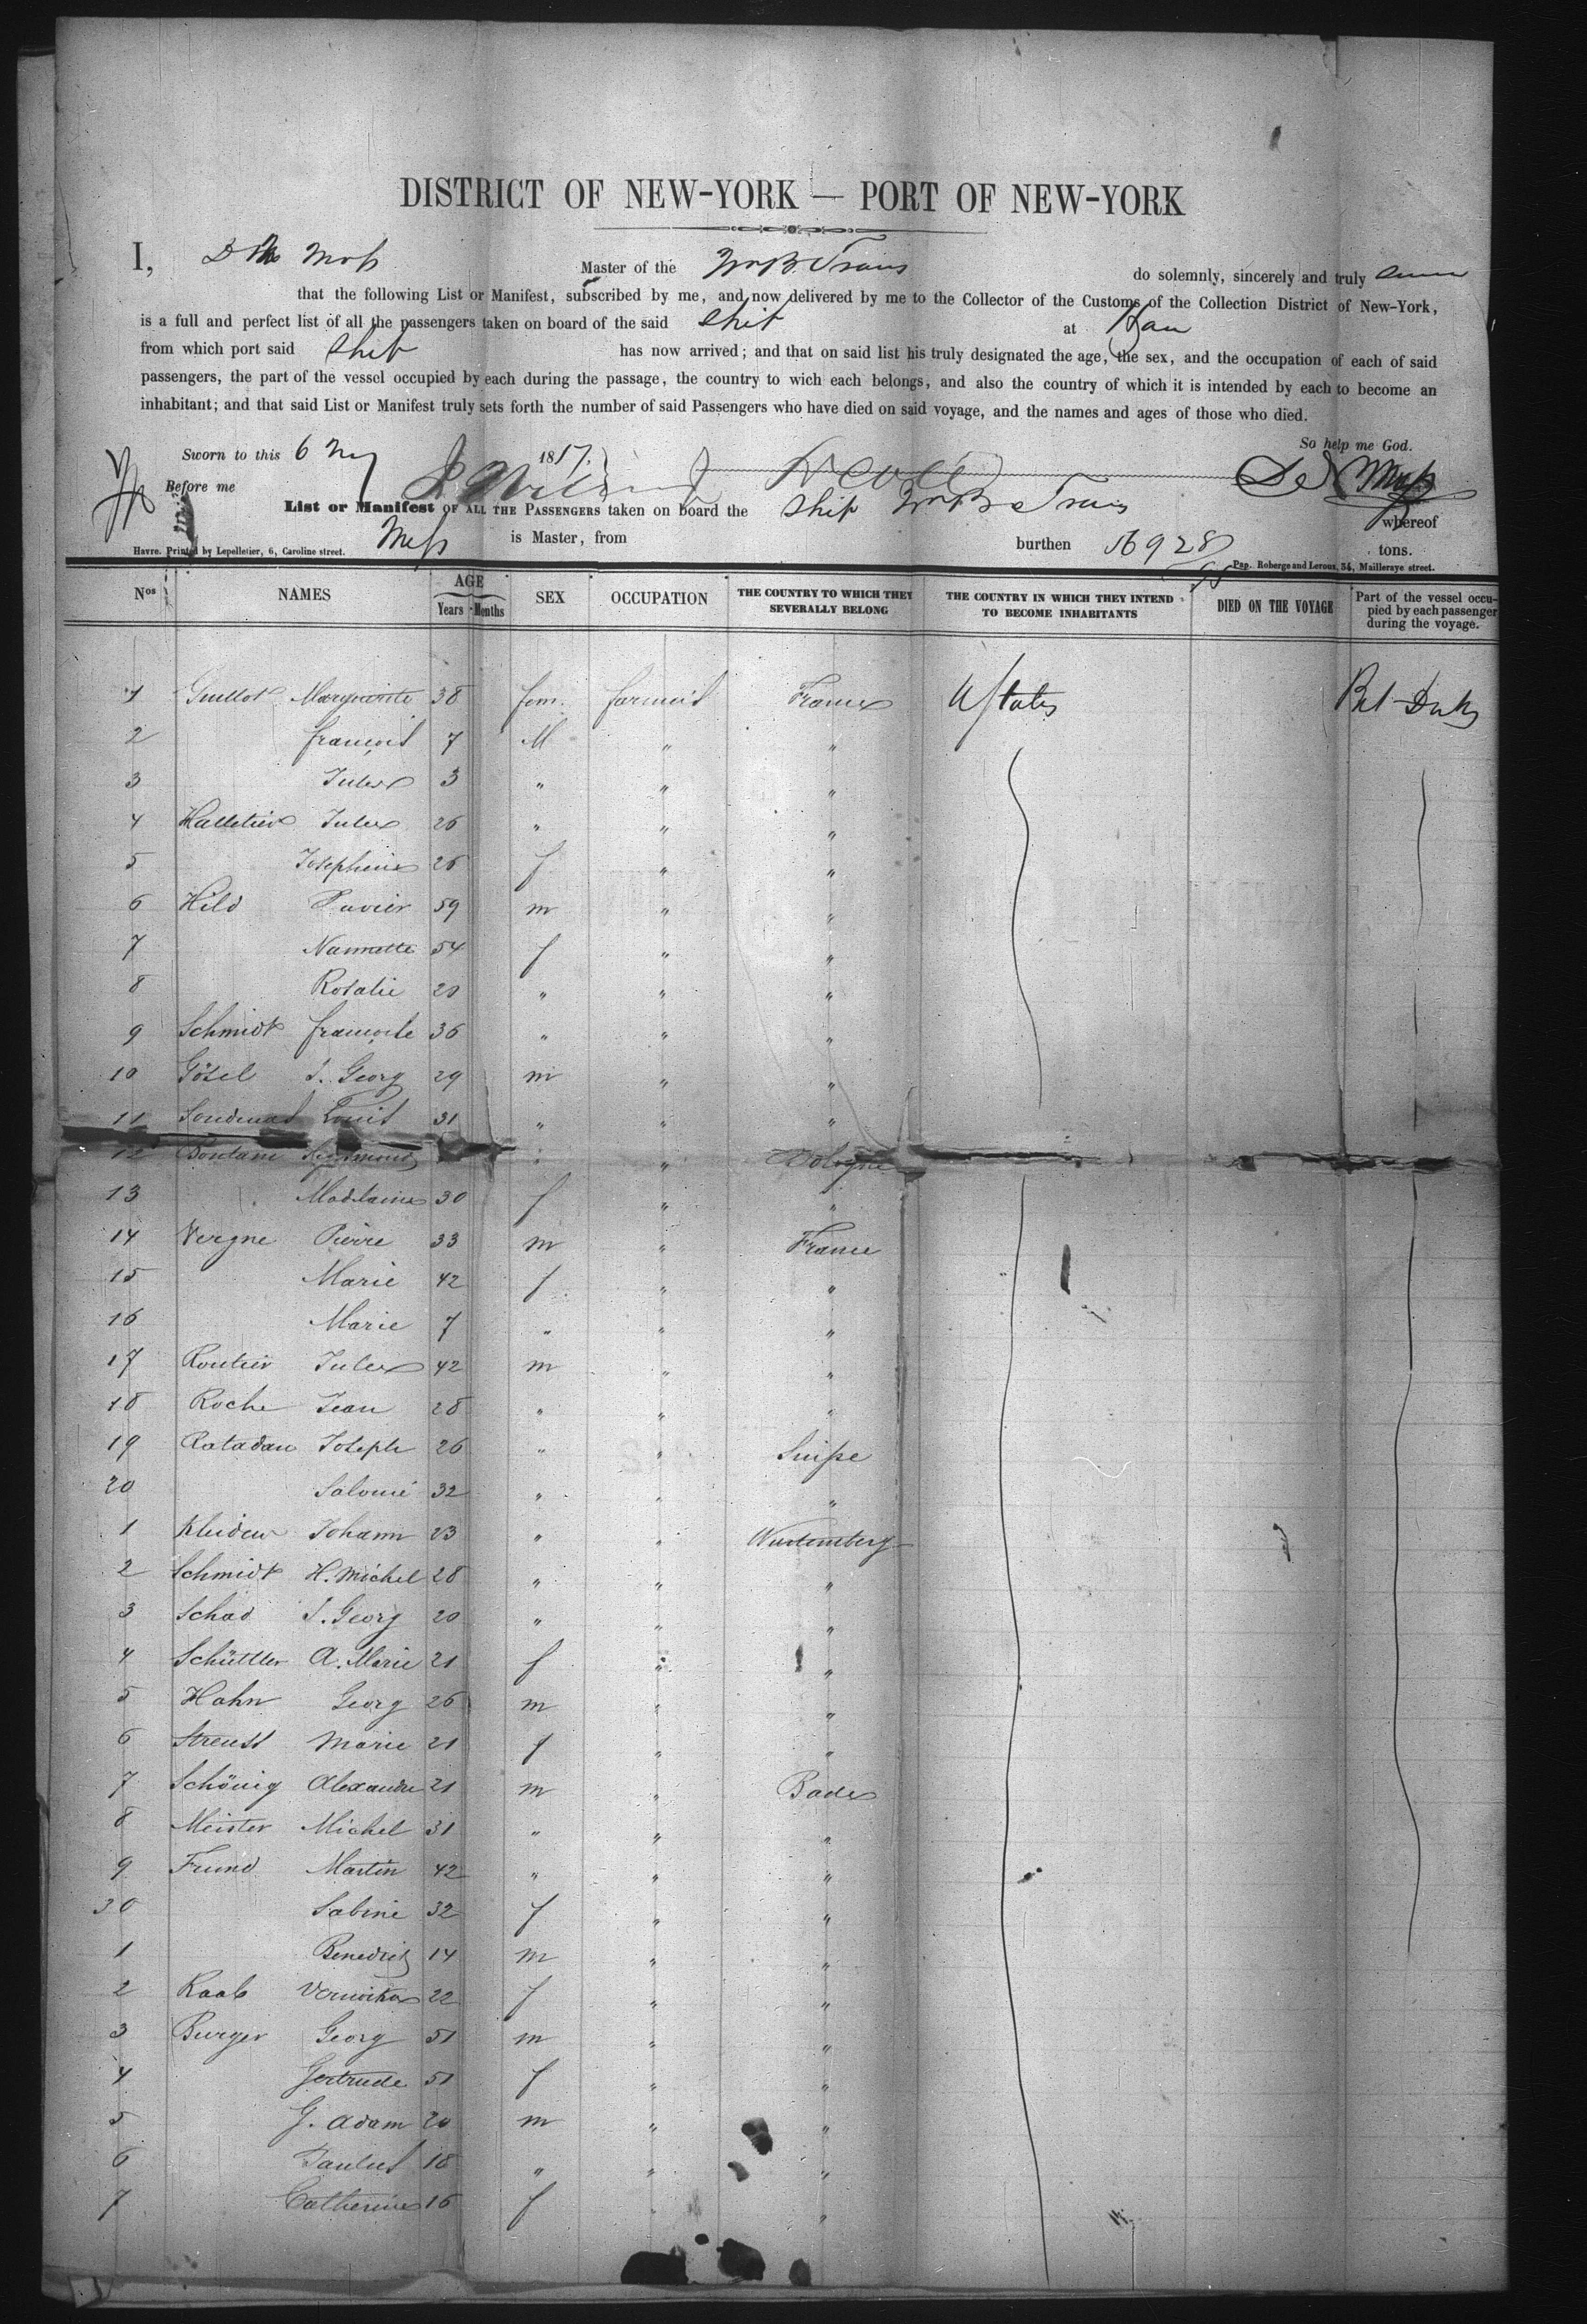 DISTRICT OF NEW-YORK — PORT OF NEW-YORK
I, Moss Master of the Wm B. Travis do solemnly, sincerely and truly
that the following List or Manifest, subscribed by me, and now delivered by me to the Collector of the Customs of the Collection District of New-York,
is a full and perfect list of all the passengers taken on board of the said Ship at
from which port said Ship has now arrived; and that on said list his truly designated the age, the sex, and the occupation of each of said
passengers, the part of the vessel occupied by each during the passage, the country to wich each belongs, and also the country of which it is intended by each to become an
inhabitant; and that said List or Manifest truly sets forth the number of said Passengers who have died on said voyage, and the names and ages of those who died.
So help me God.
Sworn to this 6 1857.
Before me
List or Manifest OF ALL THE PASSENGERS taken on board the Ship Wm B Travis whereof
Moss is Master, from burthen tons.
Havre. Printed by Lepelletier, 6, Caroline street. Pap. Roberge and Leroux, 34, Mailleraye street.
Nos NAMES AGE Years Months SEX OCCUPATION THE COUNTRY TO WHICH THEY SEVERALLY BELONG THE COUNTRY IN WHICH THEY INTEND TO BECOME INHABITANTS DIED ON THE VOYAGE Part of the vessel occupied by each passenger during the voyage.
1 Guillot Marguerite 38 fem. France U States
2 françois 7 M " "
3 Jules 3 " " "
4 Halletier Jules 26 " " "
5 Josephine 26 f " "
6 Hild Xavier 59 m " "
7 Nannette 54 f " "
8 Rosalie 20 " " "
9 Schmidt françoise 36 " " "
10 Gösel J. Georg 29 m " "
11 Louis 31 " " "
12 " "
13 Madelaine 30 f " "
14 Vergne Pierre 33 m " France
15 Marie 42 f " "
16 Marie 7 " " "
17 Routier Jules 42 m " "
18 Roche Jean 28 " " "
19 Ratadan Joseph 26 " " Suisse
20 Salomé 32 " " "
1 Johann 23 " " Wurtemberg
2 Schmidt H. Michel 28 " " "
3 Schad J. Georg 20 " " "
4 Schüttler A. Marie 21 f " "
5 Hahn Georg 26 m " "
6 Streuss Marie 21 f " "
7 Schönig Alexandre 21 m " Bade
8 Meister Michel 31 " " "
9 Freund Martin 42 " " "
30 Sabine 32 f " "
1 Benedict 14 m " "
2 Raab Veronika 22 f " "
3 Burger Georg 51 m " "
4 Gertrude 51 f " "
5 G. Adam 20 m " "
6 Paulus 18 " " "
7 Catherine 16 f " "